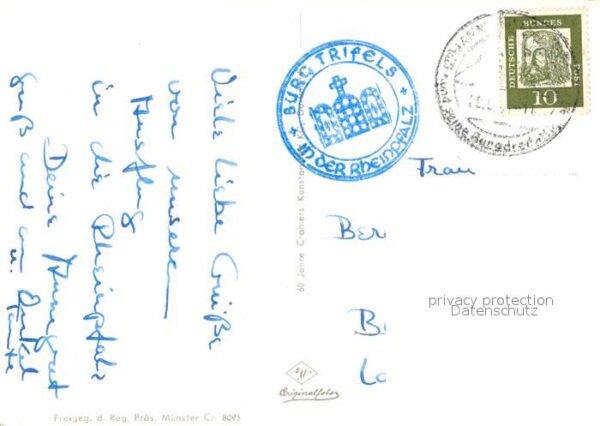 Viele liebe Grüße
von unserem
Ausflug
in die Rheinpfalz
Deine Annegret
Gruß auch an Onkel
u. Tante
BURG TRIFELS
IN DER RHEINPFALZ
DEUTSCHE BUNDESPOST
10
Frau
Ber
B
La
privacy protection
Datenschutz
60 Jahre Cramers Kunstanst
Originalfoto
Freigeg. d. Reg. Präs. Münster Cr. 8095